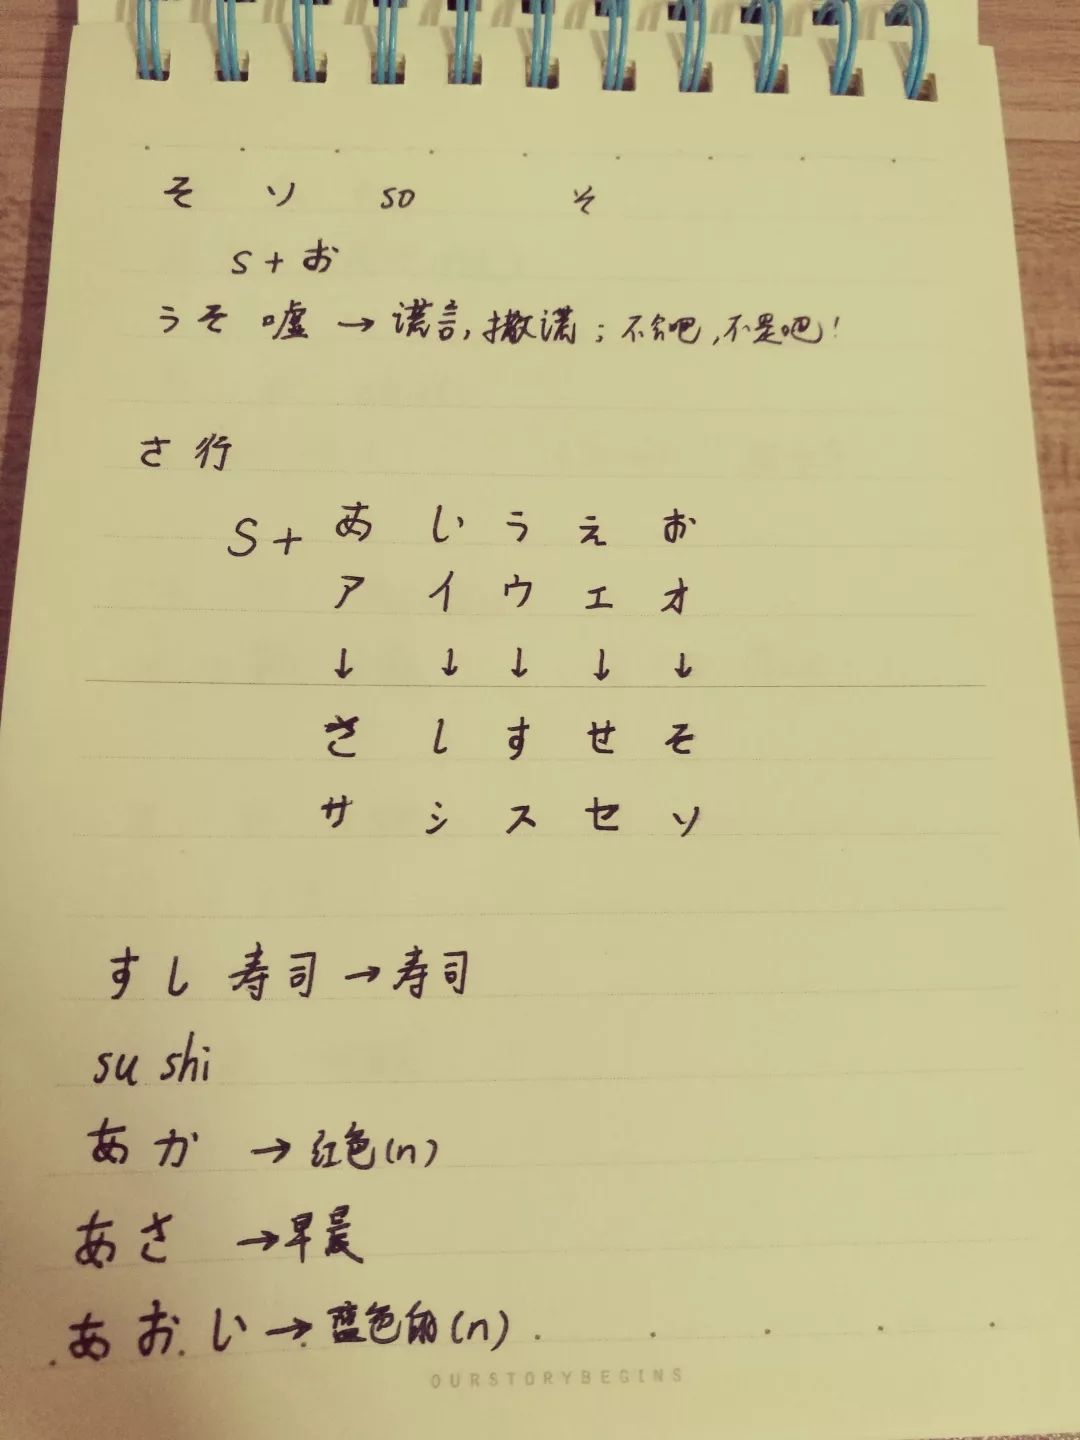 そ ソ so そ
s+お
うそ 嘘 → 谎言,撒谎;不会吧,不是吧!
さ行
S+ あ い う え お
ア イ ウ エ オ
↓ ↓ ↓ ↓ ↓
さ し す せ そ
サ シ ス セ ソ
すし 寿司 → 寿司
su shi
あか → 红色(n)
あさ → 早晨
あおい → 蓝色的(n)
OURSTORYBEGINS